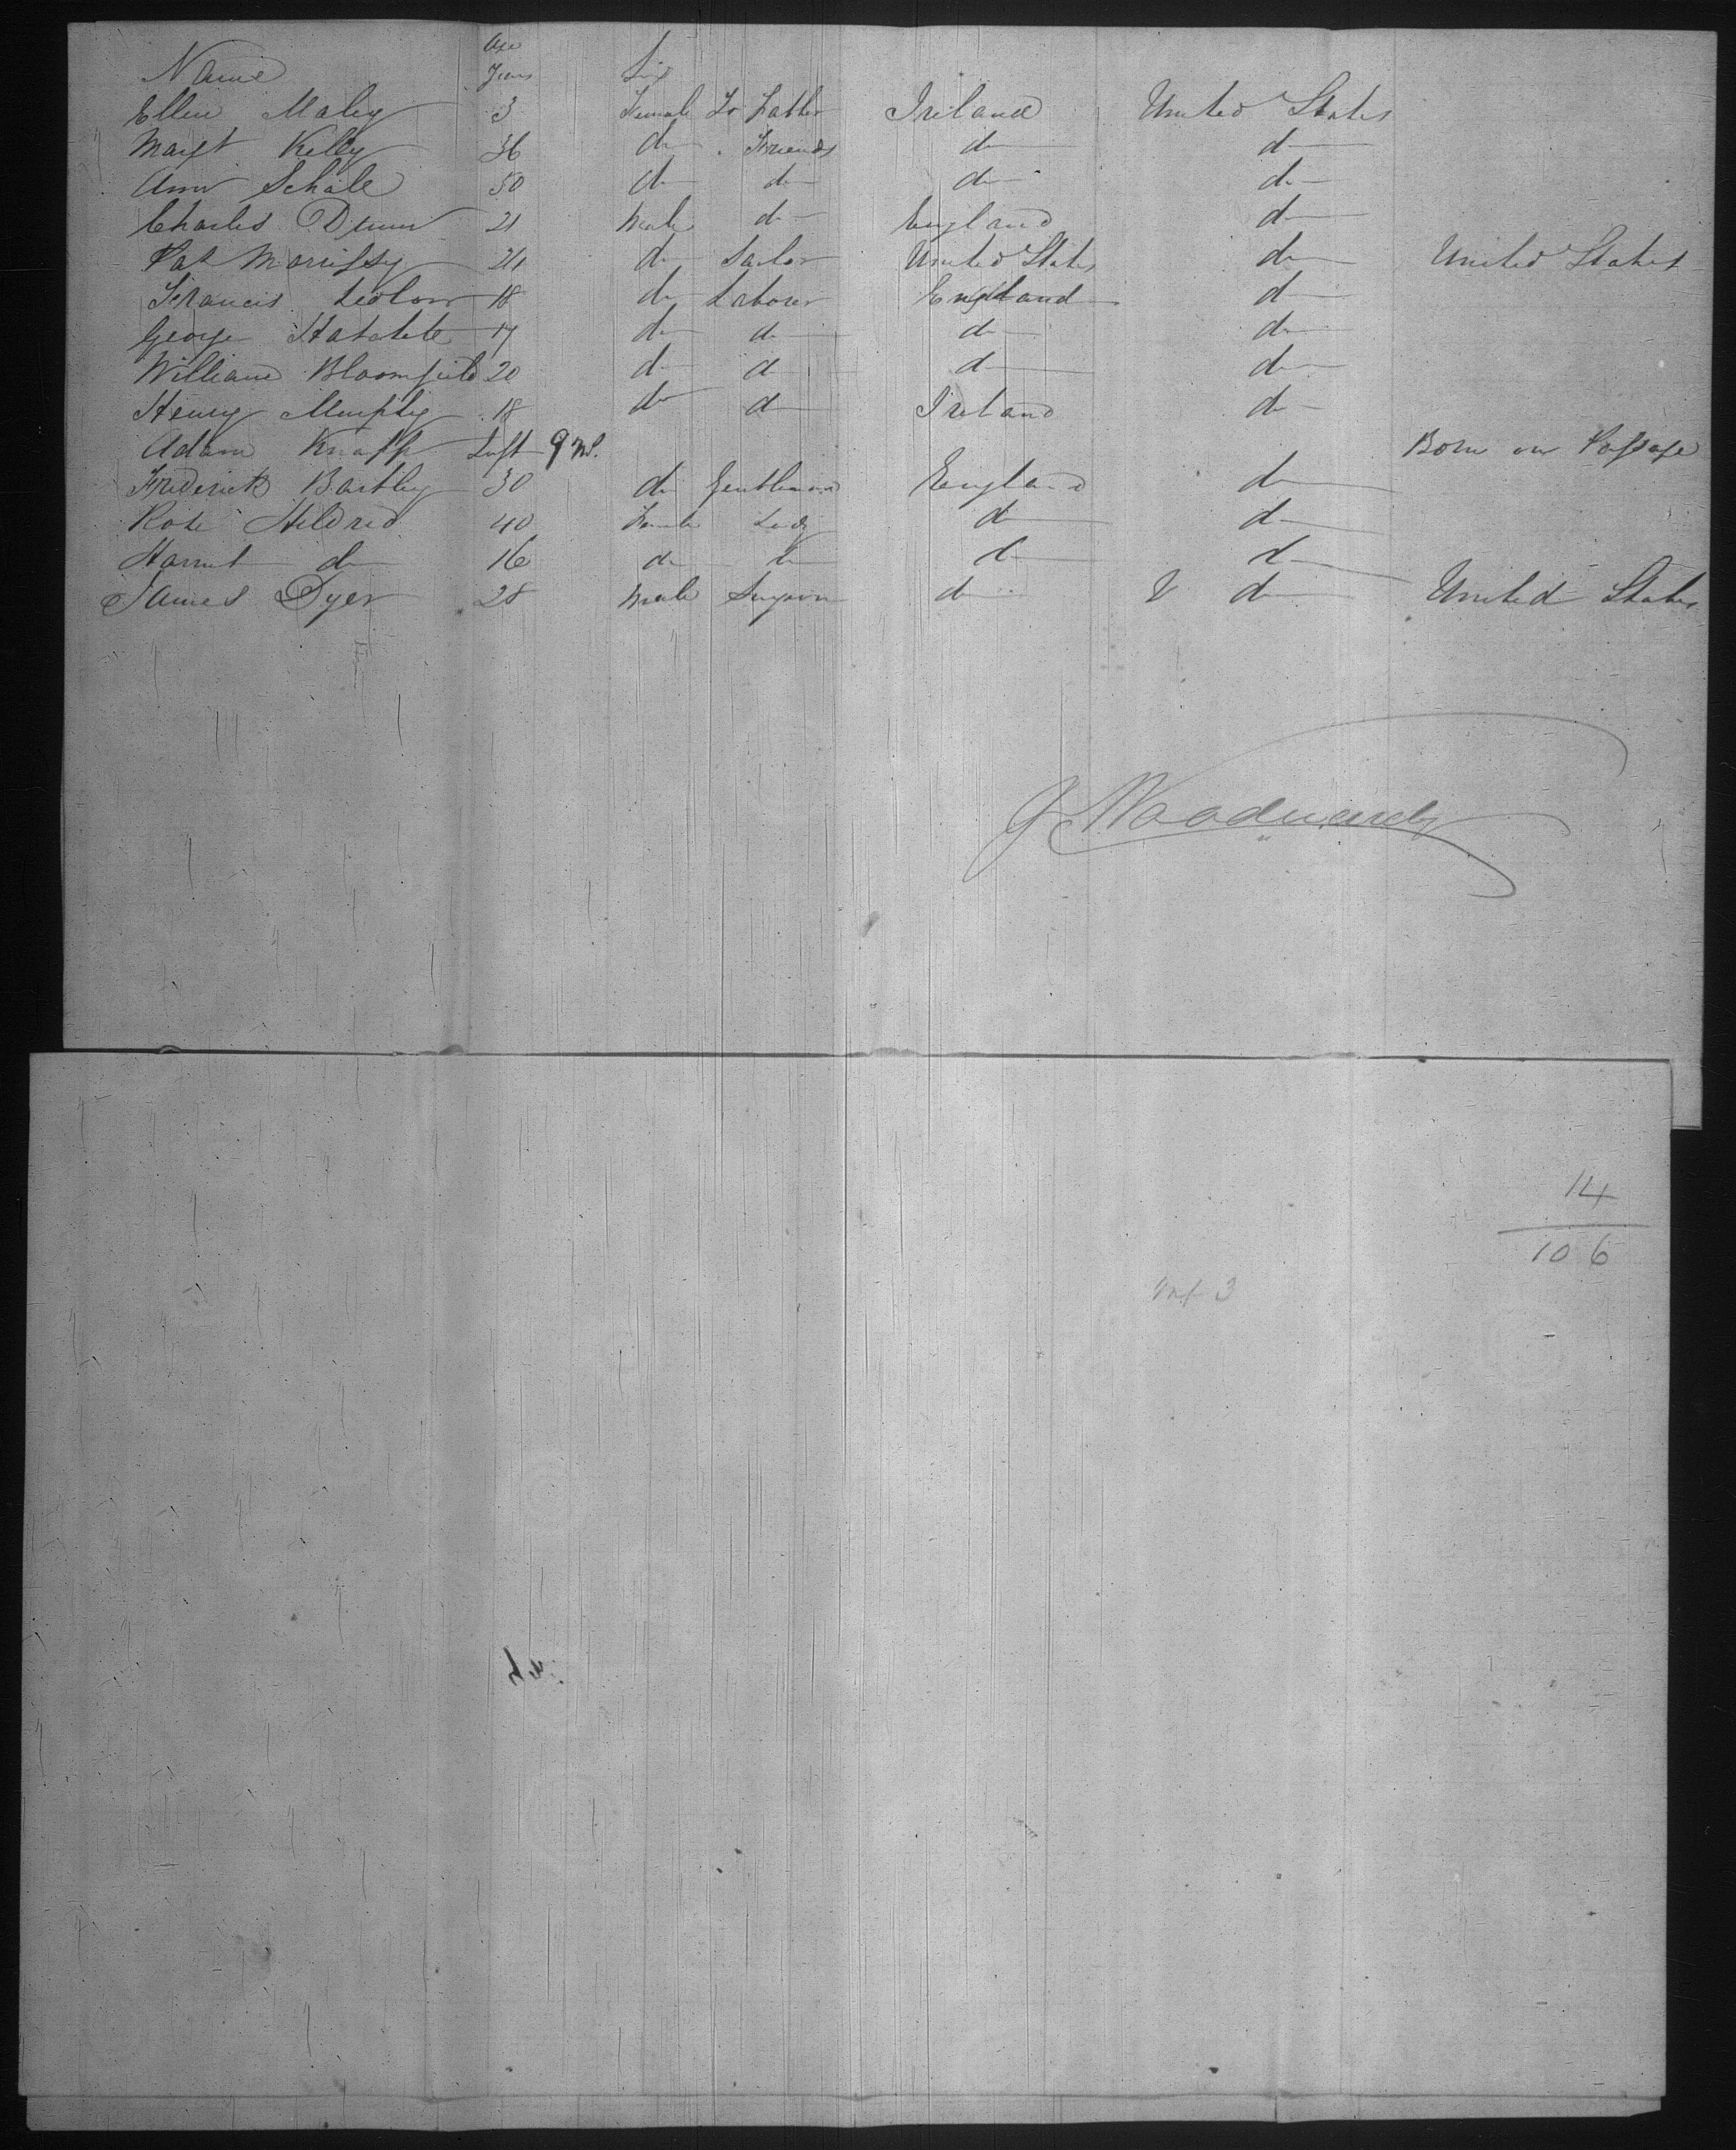 Age
Name Years Sex
Ellen Maley 3 Female To Father Ireland United States
Margt Kelly 36 do Friends do do
Ann Schile 50 do do do do
Charles Dunn 21 Male do England do
Pat Morrissy 24 do Sailor United States do United States
Francis 18 do Laborer England do
George 17 do do do do
William Bloomfield 20 do do do do
Henry Murphy 18 do do Ireland do
Adam Knapp Inft 9 m. Born on Passage
Frederick Bartley 30 do Gentleman England do
Rose Hildred 40 Female Lady do do
Harriet do 16 do do do do
James Dyer 28 Male Surgeon do do United States
J Woodward
14
106
Inf 3